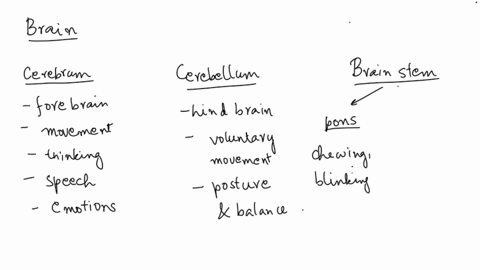 Brain
Cerebrum
- fore brain
- movement
- thinking
- speech
- Emotions
Cerebellum
- hind brain
- voluntary
movement
- posture
& balance .
Brain stem
pons
chewing,
blinking